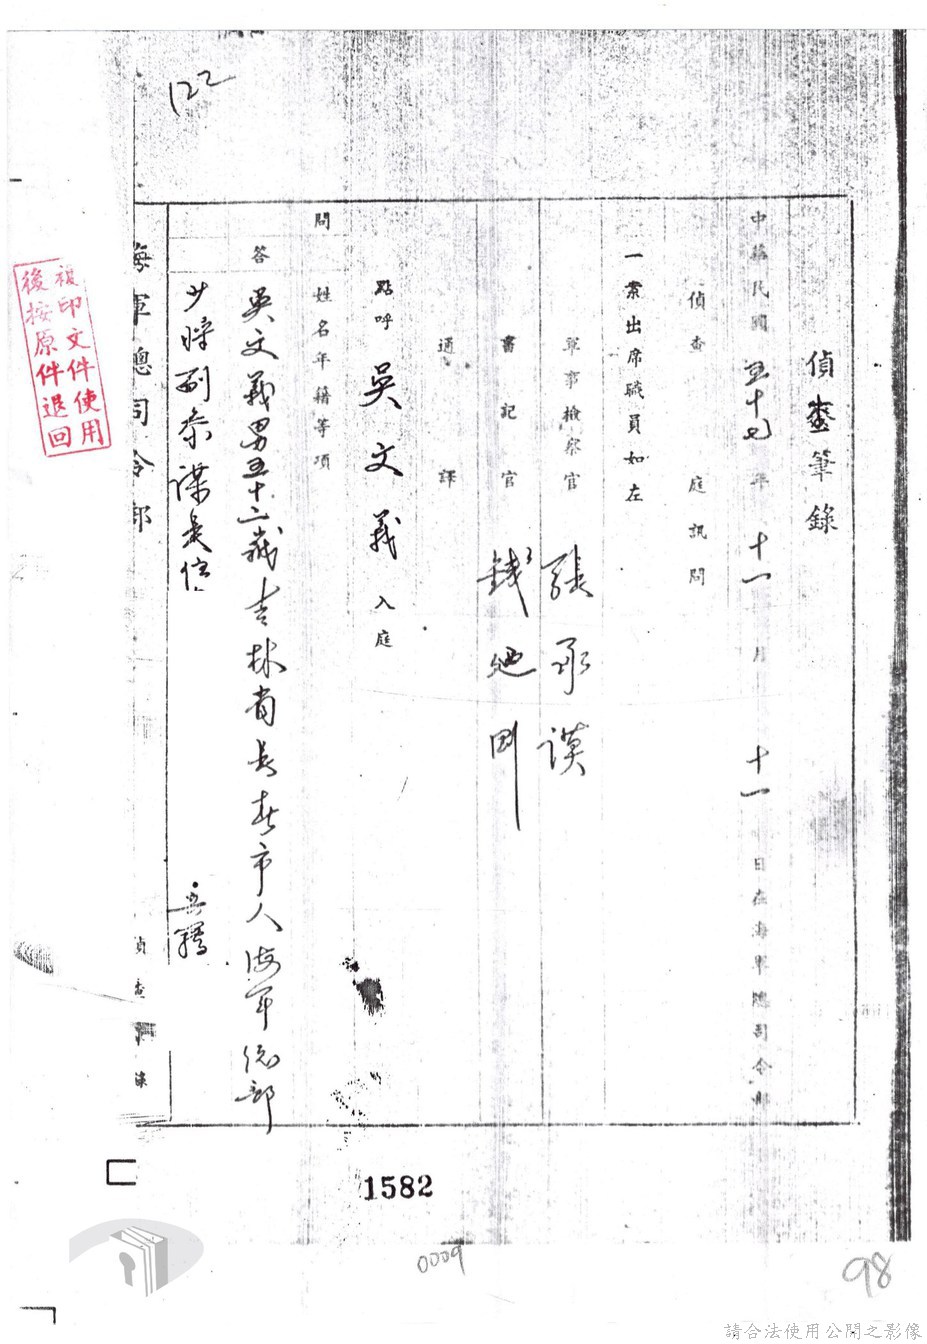 122
偵查筆錄
中華民國五十七年十一月十一日在海軍總司令部
偵查庭訊問
一案出席職員如左
軍事檢察官 張承謨
書記官 錢
通譯
點呼 吳文義 入庭
問 姓名年籍等項
答 吳文義男五十六歲吉林省長春市人海軍總部
少將副參謀長住
海軍總司令部
偵查筆錄
複印文件使用
後按原件退回
1582
0009
98
請合法使用公開之影像